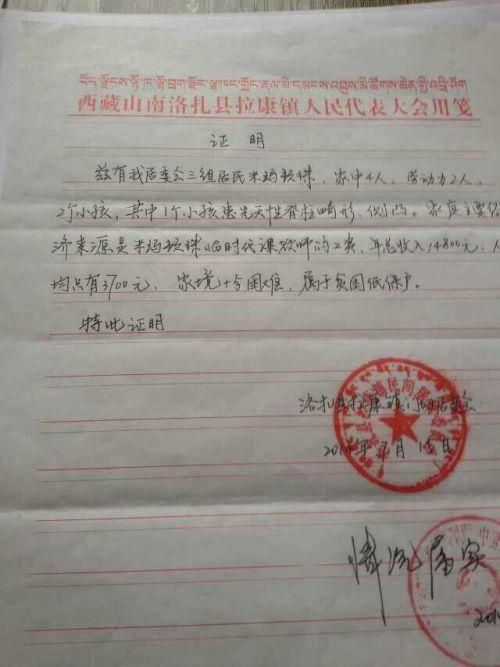 西藏山南洛扎县拉康镇人民代表大会用笺
证明
兹有我居委会三组居民米玛顿珠，家中4人，劳动力2人，
2个小孩，其中1个小孩患先天性脊柱畸形、侧凸。家庭主要经
济来源是米玛顿珠临时代课教师的工资，年总收入14800元，人
均只有3700元，家境十分困难，属于贫困低保户。
特此证明
洛扎县拉康镇
月15日
情况属实